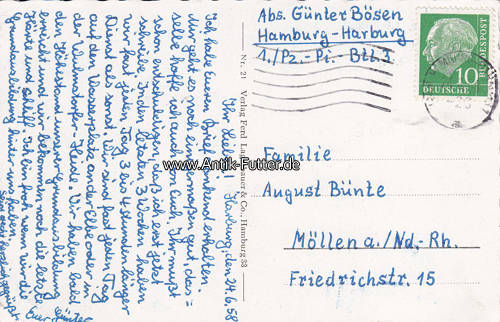 Harburg, den 24.6.58
Ihr Lieben!
Ich habe euren Brief dankend erhalten.
mir geht es noch einigermaßen gut, das-
selbe hoffe ich auch von Euch. Ihr müßt
schon entschuldigen, daß ich erst jetzt
schreibe. In den letzten 3 Wochen haben
wir jeden Tag 3 bis 4 Stunden länger
Dienst als sonst. Wir sind fast jeden Tag
auf den Wasserplatz an der Elbe oder in
der Heide. Wir haben bald
den Höhepunkt unserer Grundausbildung
erreicht und wir bekommen noch die letzte
Härte und Schliff. Ich bin froh wenn wir die
Grundausbildung hinter uns haben.
Seid recht herzlich gegrüßt
Euer Günter
Nr. 21 Verlag Ferd. Lagerbauer & Co., Hamburg 33
Abs. Günter Bösen
Hamburg-Harburg
1./Pz.-Pi.-Btl. 3
DEUTSCHE BUNDESPOST
10
www.Antik-Futter.de
Familie
August Bünte
Möllen a./Nd.-Rh.
Friedrichstr. 15